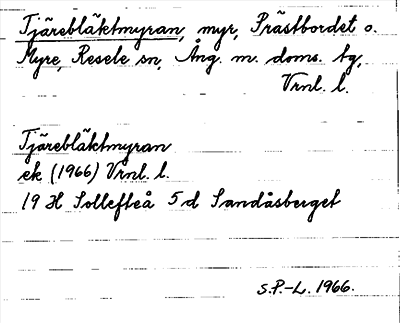 Tjärebläktmyran, myr, Prästbordet o.
Myre, Resele sn, Ång. m. doms. tg,
Vrnl. l.
Tjärebläktmyran
ek (1966) Vrnl. l.
19 H Sollefteå 5 d Sandåsberget
S.P.-L. 1966.